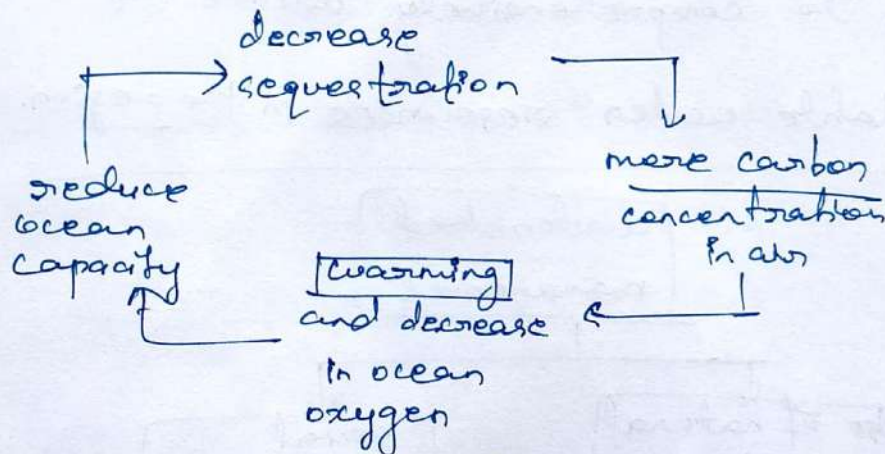 decrease
sequestration
more carbon
concentration
in air
warming
and decrease
in ocean
oxygen
reduce
ocean
capacity